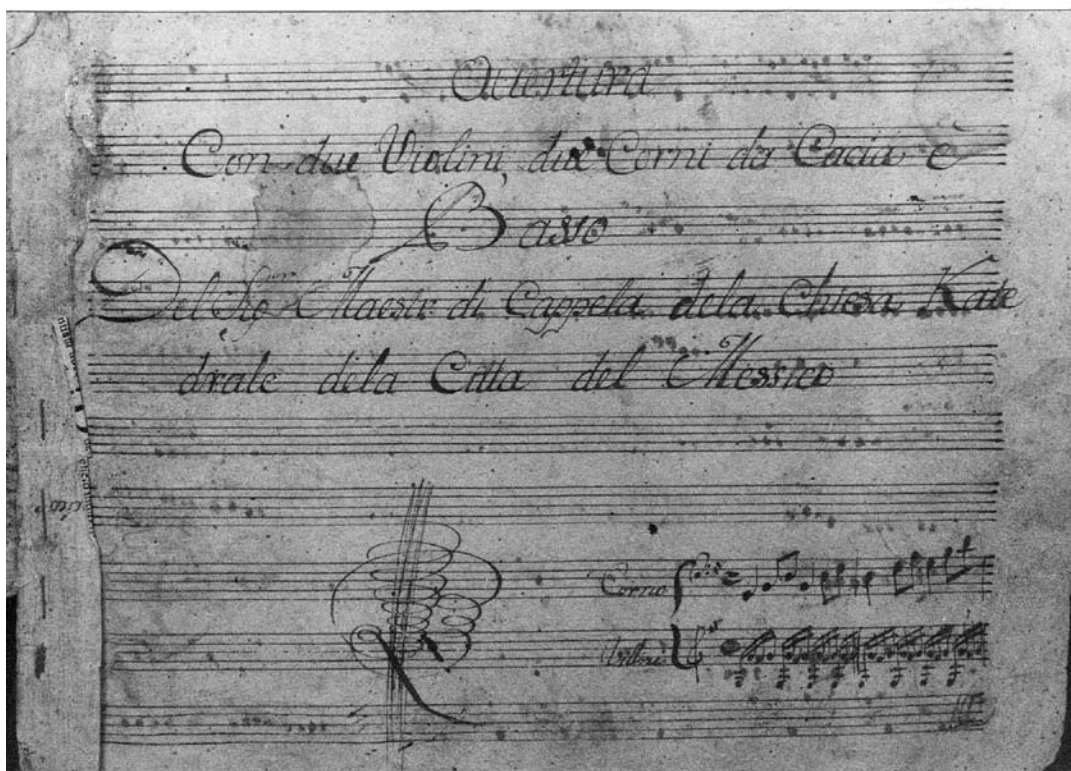 Overtura
Con due Violini, due Corni da Cacia è
Basso
Del Maestr di Cappela dela Chiesa Kate
drale dela Citta del Messico
Corno